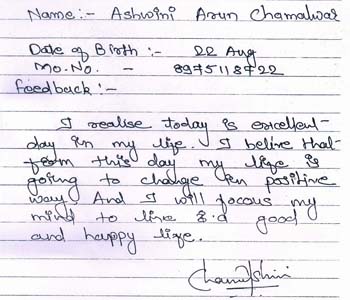 Name:- Ashwini Arun Chamalwar
Date of Birth :- 22 Aug
Mo.No. - 8975118722
Feedback :-
I realise today is excellent-
day in my life. I belive that-
from this day my life is
going to change in positive
way. And I will focus my
mind to live good
and happy life.